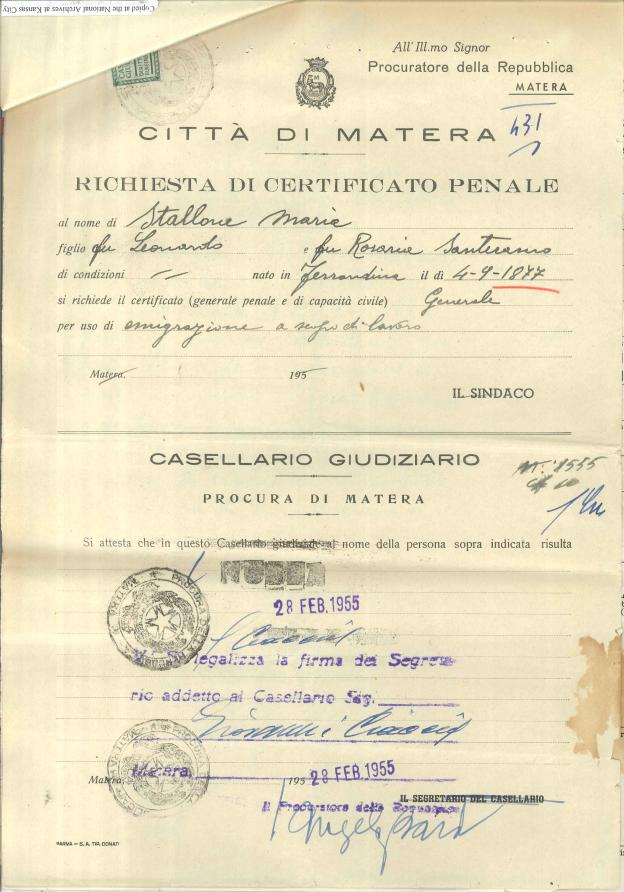 Copied at the National Archives at Kansas City
All'Ill.mo Signor
Procuratore della Repubblica
MATERA
CITTÀ DI MATERA
431
RICHIESTA DI CERTIFICATO PENALE
al nome di Stallone Maria
figlio fu Leonardo e fu Rosaria Santeramo
di condizioni nato in Ferrandina il dì 4-9-1877
si richiede il certificato (generale penale e di capacità civile) Generale
per uso di emigrazione a scopo di lavoro
Matera, 195
IL SINDACO
CASELLARIO GIUDIZIARIO
PROCURA DI MATERA
Si attesta che in questo Casellario giudiziale al nome della persona sopra indicata risulta
NULLA
28 FEB. 1955
legalizza la firma del Segreta
rio addetto al Casellario Sig.
Giovanni
Matera, 195 28 FEB. 1955
IL SEGRETARIO DEL CASELLARIO
Il Procuratore della Repubblica
PARMA - S. A. TIP. DONATI